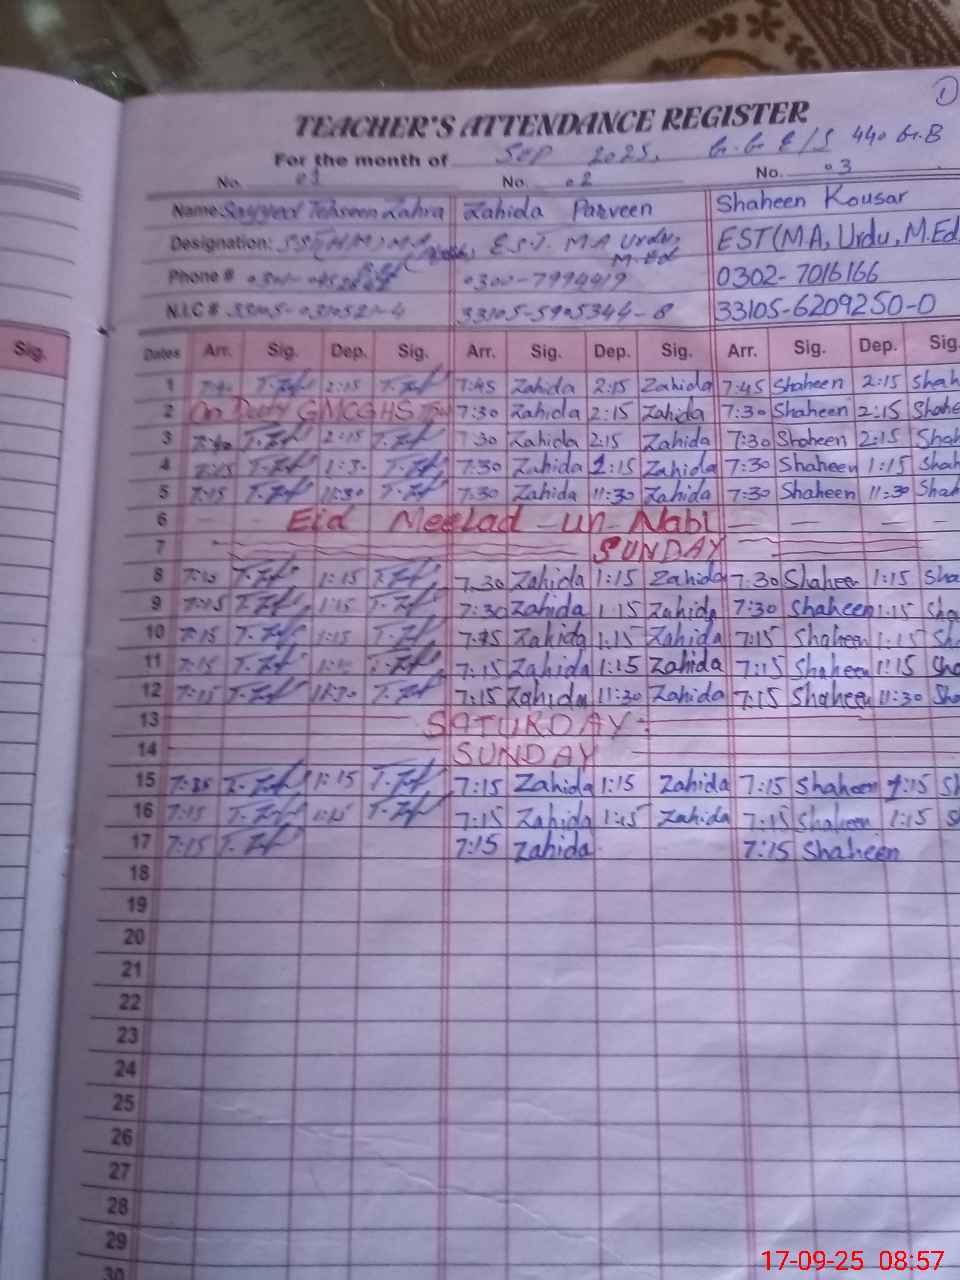 1
TEACHER'S ATTENDANCE REGISTER
For the month of Sep 2025. G.G E/S 440 G.B
No. 01 No. 02 No. 03
Name: Sayyed Tehseen Zahra Zahida Parveen Shaheen Kousar
Designation: SST(HM) M.A E.S.T. M.A Urdu, M.Ed EST(M.A, Urdu, M.Ed
Phone # 0300-7994419 0302-7016166
N.I.C # 33105-5905344-8 33105-6209250-0
Sig. Dates Arr. Sig. Dep. Sig. Arr. Sig. Dep. Sig. Arr. Sig. Dep. Sig.
1 7:40 2:15 7:45 Zahida 2:15 Zahida 7:45 Shaheen 2:15 Shah
2 On Duty GMCGHS 7:30 Zahida 2:15 Zahida 7:30 Shaheen 2:15 Shahe
3 7:40 2:15 7:30 Zahida 2:15 Zahida 7:30 Shaheen 2:15 Shah
4 7:15 1:30 7:30 Zahida 1:15 Zahida 7:30 Shaheen 1:15 Shah
5 7:15 11:30 7:30 Zahida 11:30 Zahida 7:30 Shaheen 11:30 Shah
6 Eid Meelad-un-Nabi
7 SUNDAY
8 7:15 1:15 7.30 Zahida 1:15 Zahida 7:30 Shaheen 1:15 Sha
9 7:15 1:15 7:30 Zahida 1:15 Zahida 7:30 Shaheen 1:15 Sha
10 7:15 1:15 Zahida 1:15 Zahida 7:15 Shaheen 1:15 Sha
11 7:15 1:15 7:15 Zahida 1:15 Zahida 7:15 Shaheen 1:15 Sha
12 7:15 11:30 7:15 Zahida 11:30 Zahida 7:15 Shaheen 11:30 Sha
13 SATURDAY:
14 SUNDAY
15 1:15 7:15 Zahida 1:15 Zahida 7:15 Shaheen 1:15 Sh
16 7:15 1:15 7:15 Zahida 1:15 Zahida 7:15 Shaheen 1:15 S
17 7:15 7:15 Zahida 7:15 Shaheen
18
19
20
21
22
23
24
25
26
27
28
29
30
17-09-25 08:57